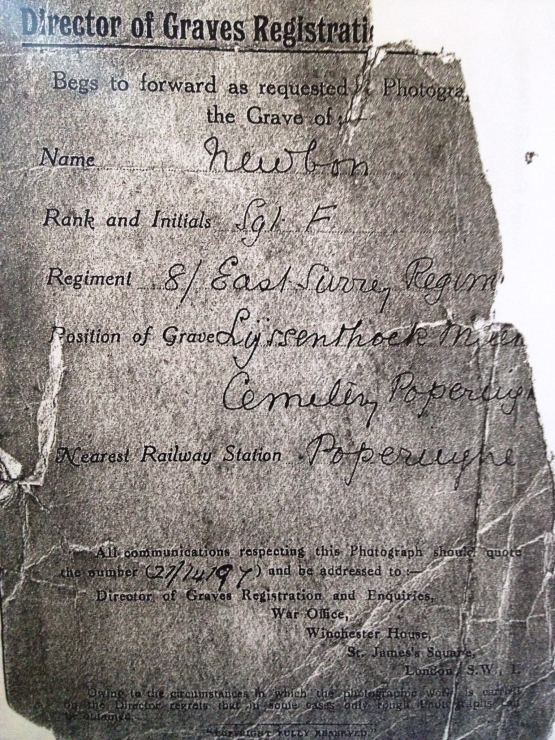 Director of Graves Registrati
Begs to forward as requested Photogra
the Grave of :—
Name Newbon
Rank and Initials Sgt F
Regiment 8/ East Surrey Regim
Position of Grave Lyssenthoek
Cemetery
Nearest Railway Station Poperinghe
All communications respecting this Photograph should quote
the number (27/14197) and be addressed to :—
Director of Graves Registration and Enquiries,
War Office,
Winchester House,
St. James's Square,
London, S.W. 1.
Owing to the circumstances in which the photographic work is carried
on the Director regrets that in some cases only rough Photographs can
be obtained.
"COPYRIGHT FULLY RESERVED."